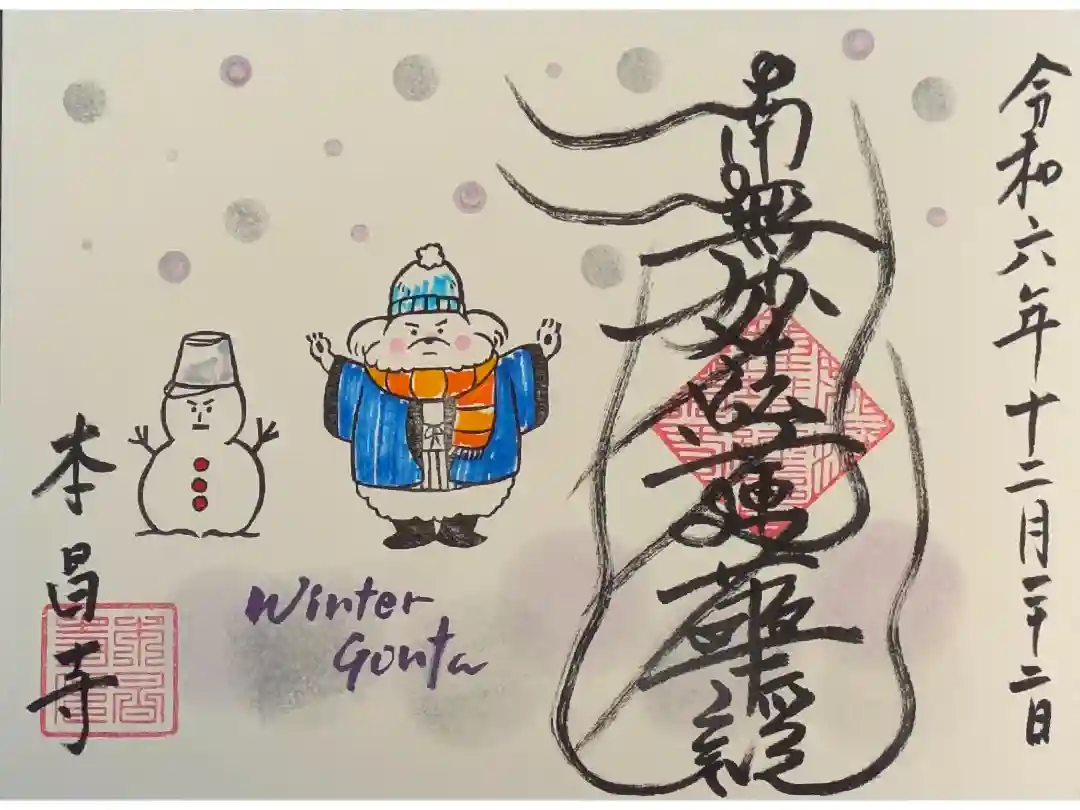 令和六年十二月二十二日
南無妙法蓮華經
Winter
Gonta
本昌寺